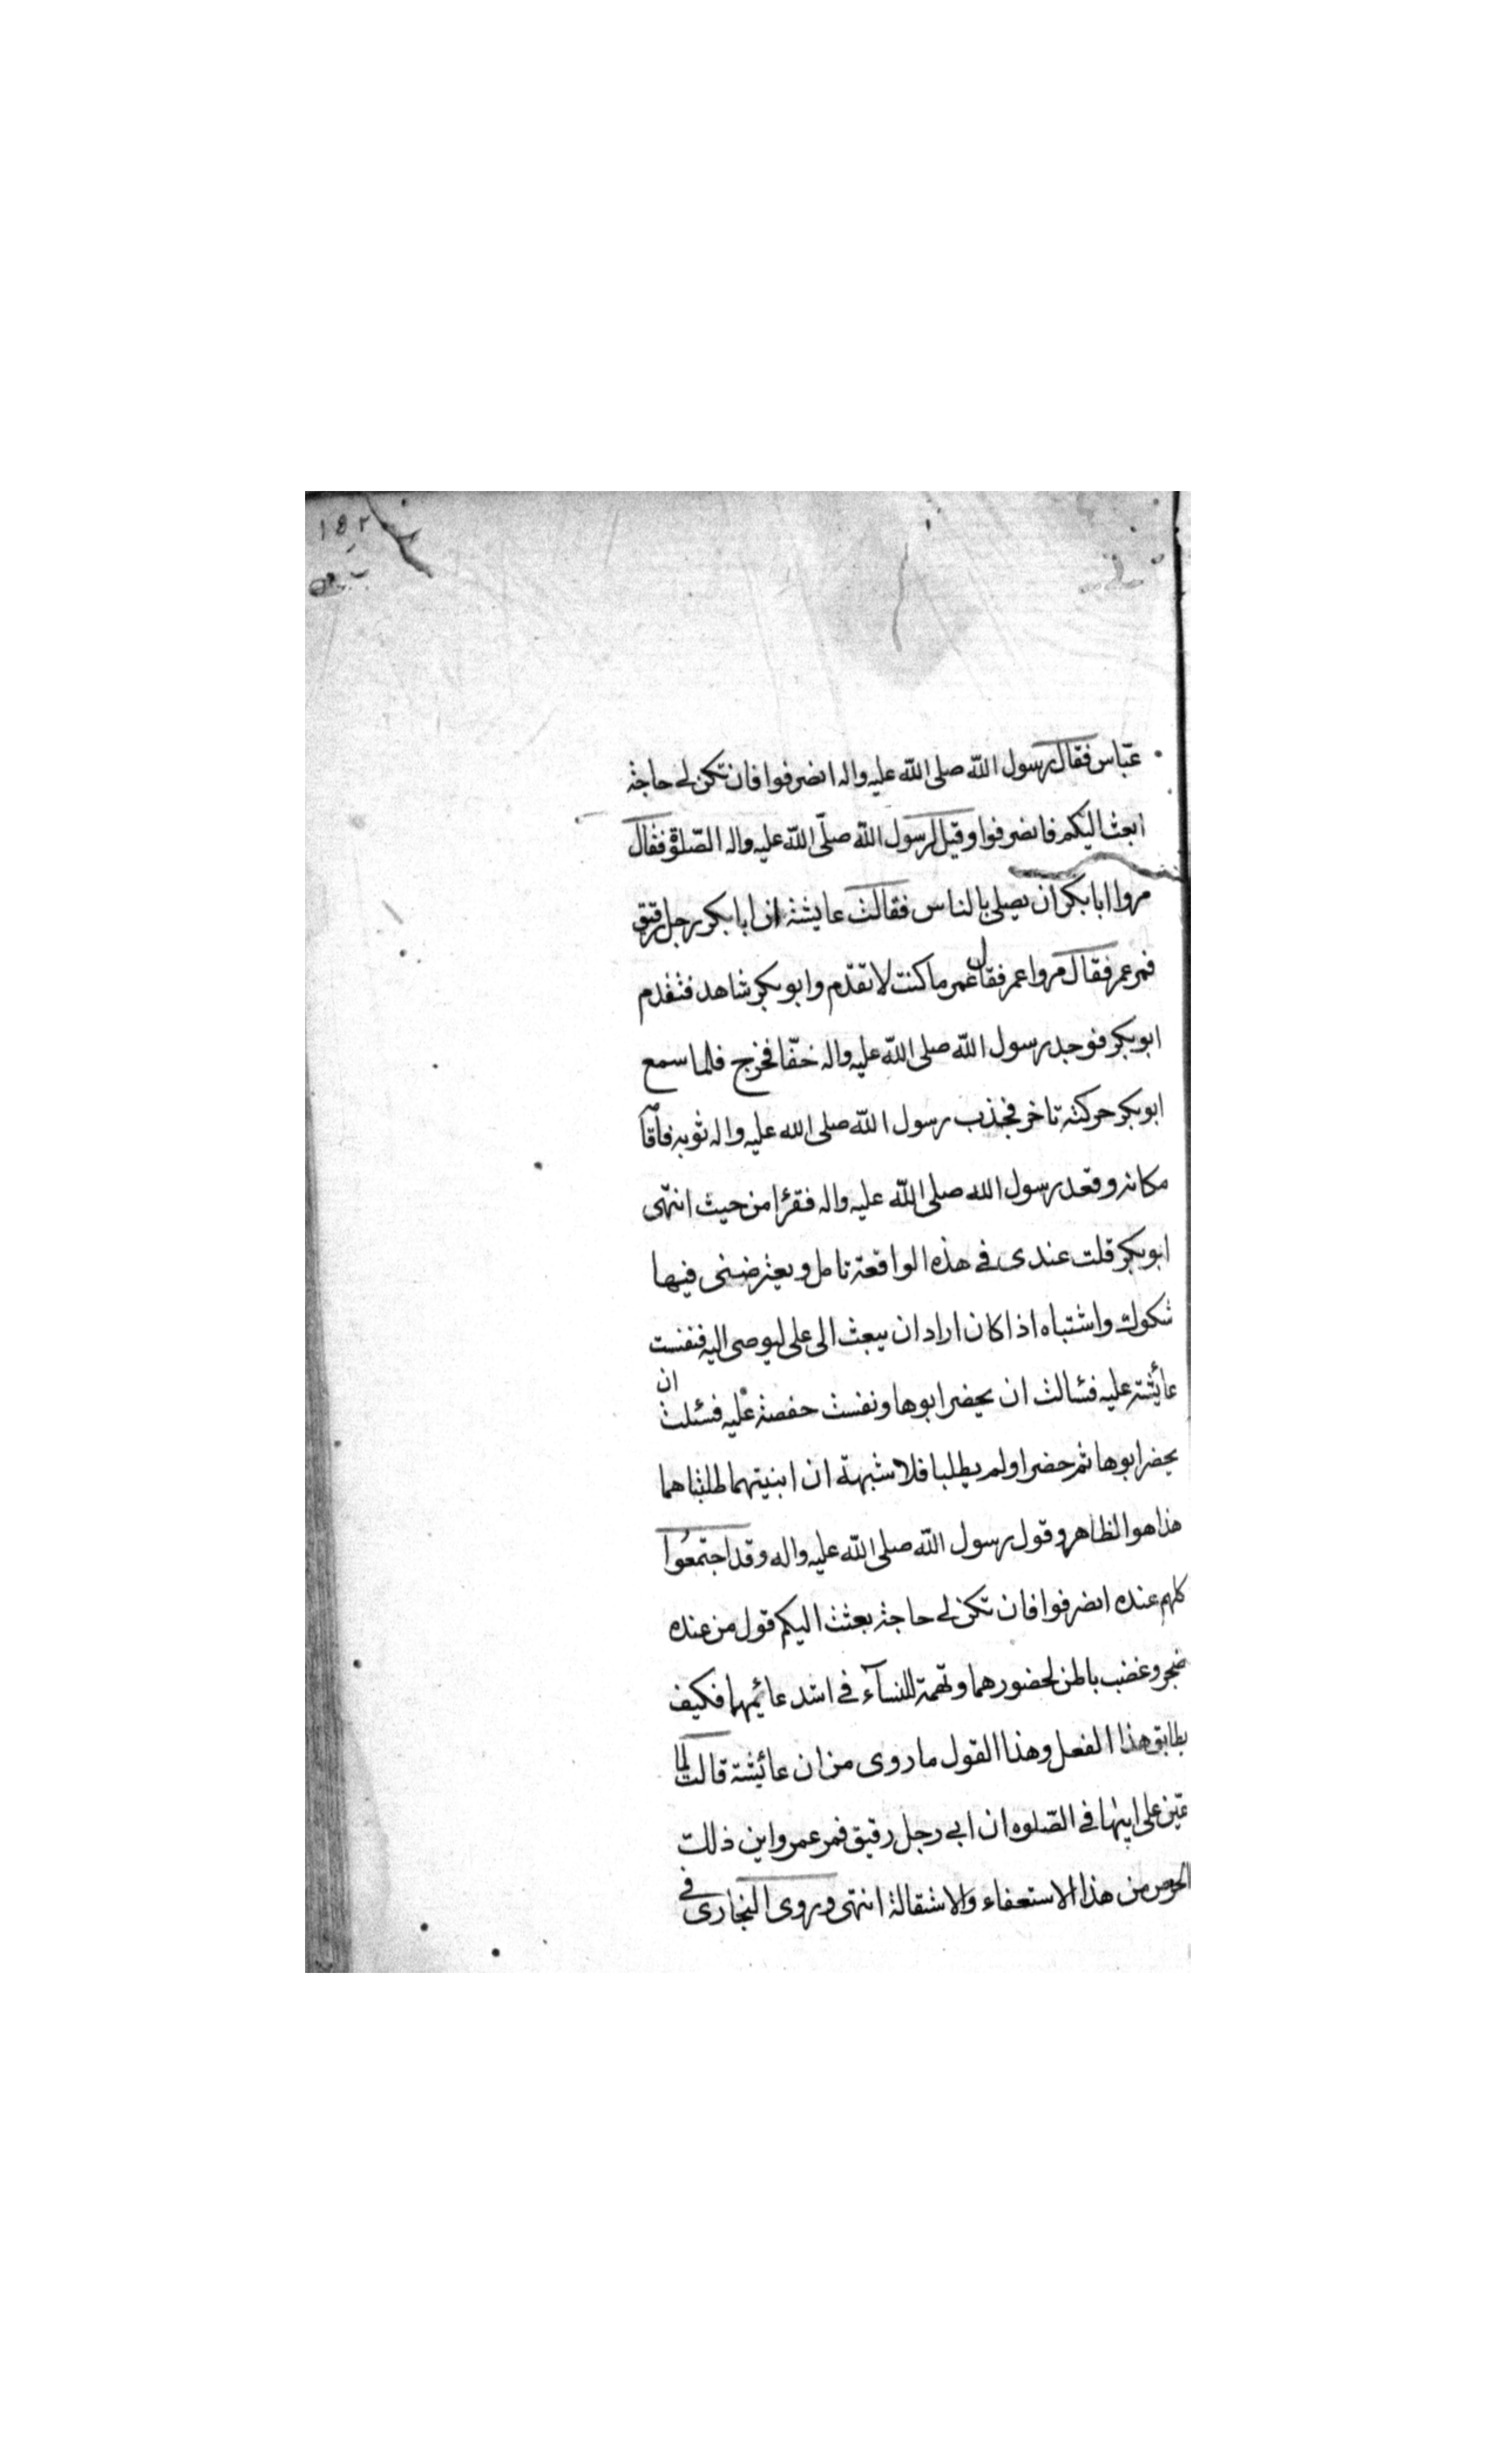 عبّاس فقال رسول الله صلى الله عليه واله انصرفوا فان تكن لے حاجة
ابعث اليكم فانصرفوا وقيل لرسول الله صلّى الله عليه واله الصّلوة فقال
مروا ابابكر ان يصلى بالناس فقالت عايشة ان ابابكر رجل رقيق
فمر عمر فقال مروا عمر فقال عمر ما كنت لاتقدّم وابوبكر شاهد فتقدم
ابوبكر فوجد رسول الله صلى الله عليه واله خفّا فخرج فلما سمع
ابوبكر حركته تاخر فجذب رسول الله صلى الله عليه واله ثوبه فاقامه
مكانه وقعد رسول الله صلى الله عليه واله فقرا من حيث انتهى
ابوبكر قلت عندى فے هذه الواقعة تامل ويعترضنى فيها
شكوك واشتباه اذا كان اراد ان يبعث الى على ليوصى اليه فنفست
عائشة عليه فسالت ان يحضر ابوها ونفست حفصة عليه فسئلت ان
يحضر ابوها ثم حضرا ولم يطلبا فلا شبهة ان ابنيتهما طلبتاهما
هذا هو الظاهر وقول رسول الله صلى الله عليه واله وقد اجتمعوا
كلهم عنده انصرفوا فان تكن لے حاجة بعثت اليكم قول من عنده
ضجر وغضب باطن لحضورهما وتهمة للنسآء فے استدعائهما فكيف
يطابق هذا الفعل وهذا القول ما روى من ان عائشة قالت لما
عيّن على ابيها فے الصّلوه ان ابى رجل رقيق فمر عمر واين ذلك
الحرص من هذا الاستعفاء والاستقالة انتهى وروى البخارى فے